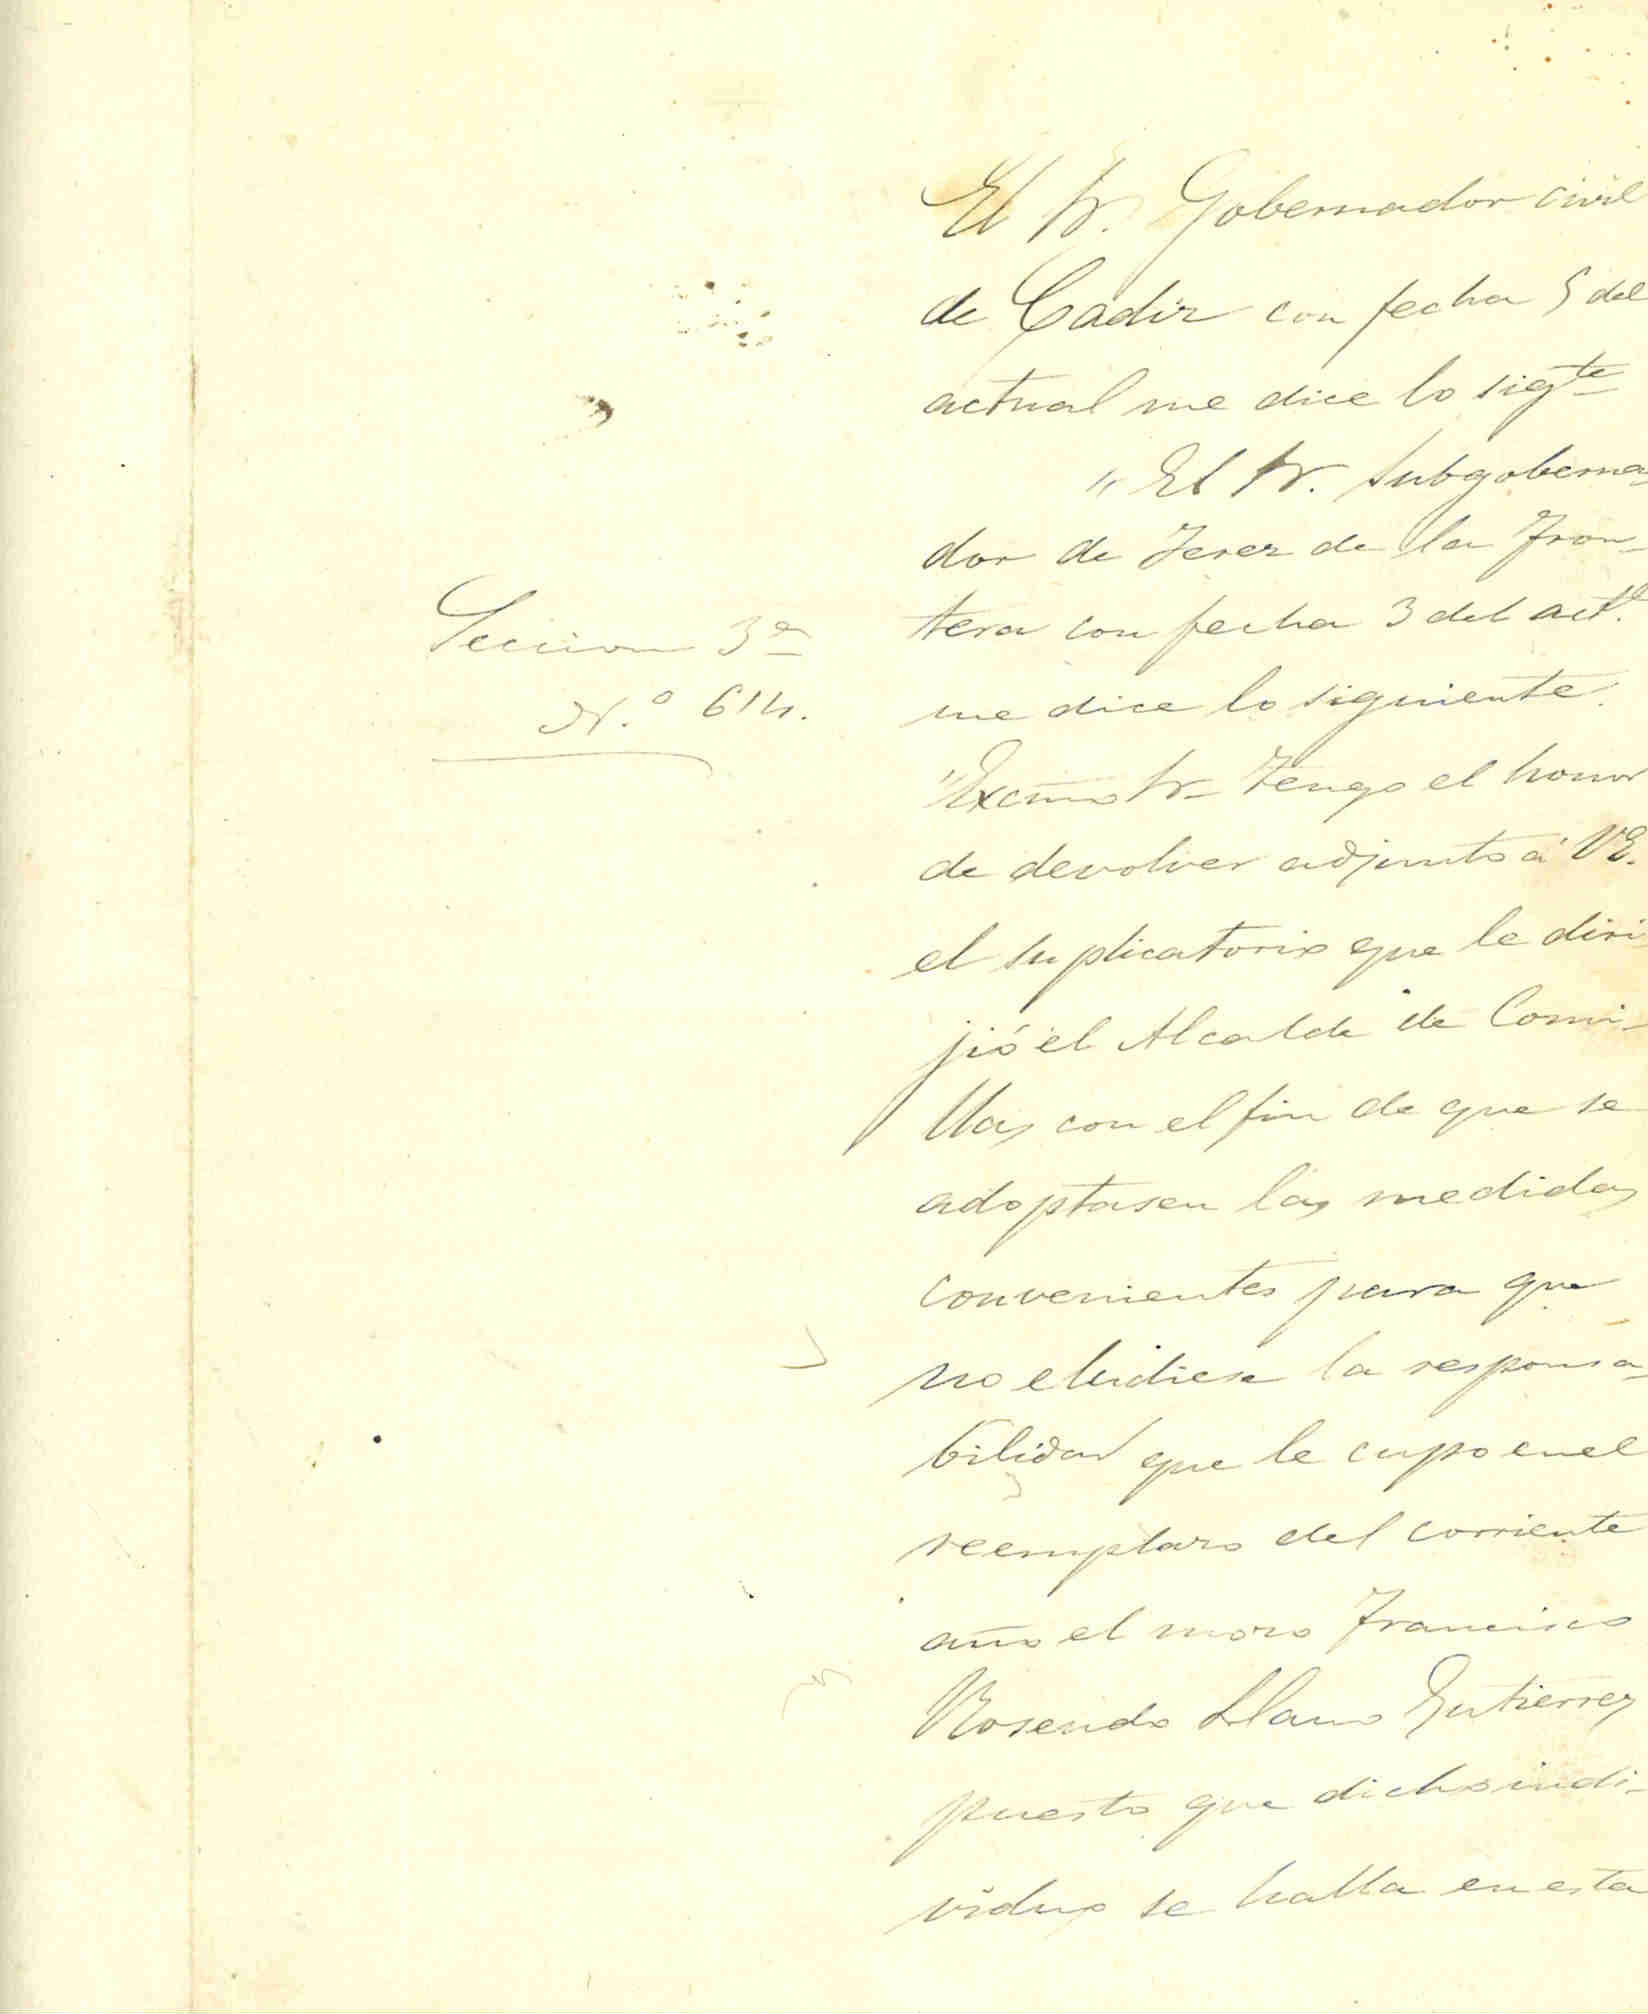 El Sr. Gobernador civil
de Cadiz con fecha 5 del
actual me dice lo sigte
"El Sr. Subgoberna-
dor de Jerez de la Fron-
tera con fecha 3 del actl.
me dice lo siguiente.
Seccion 3ª
N.º 614.
"Excmo Sr- Tengo el honor
de devolver adjunto á VE.
el suplicatorio que le diri-
jió el Alcalde de Comi-
llas con el fin de que se
adoptasen las medidas
convenientes para que
no eludiese la responsa-
bilidad que le cupo en el
reemplazo del corriente
año el mozo Francisco
Rosendo Llano Gutierrez
puesto que dicho indi-
viduo se halla en esta